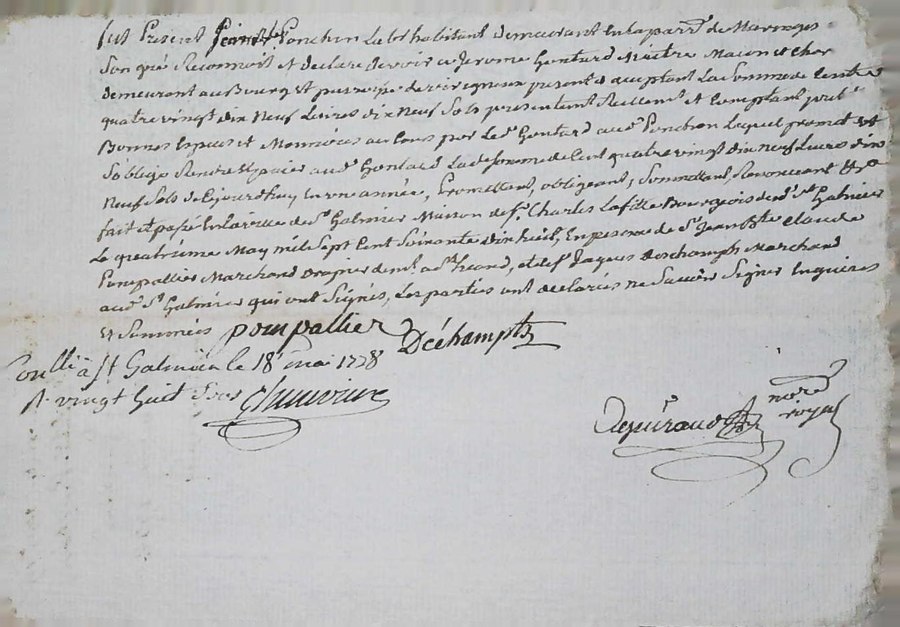 fut Present Jean Bte Ponchon Lab.r habitant demeurant En la parr.e de Maringes
Son gré Reconnoit et declare devoir a Jerome Gontard Maitre Macon et Char
demeurant au Bourg et
present et acceptant La Somme de Cent
quatre vingt dix Neuf Livres dix Neuf Sols presentem.t Reellem.t et Comptant
Bonnes Especes et Monnoies au Cours par Led. Gontard aud. Ponchon Lequel promet et
S'oblige Rendre et paier aud. Gontard Lad. Somme de Cent quatre vingt dix neuf Livres dix
Neuf Sols d'Ejourdhuy En une année, Promettant, obligeant, Sommettant, Renoncant &
fait et passé En la ville de St Galmier Maison de Sr. Charles Lafitte Bourgeois dud. St Galmier
Le quatrième May mil Sept Cent Soixante dix huit, En presence de Sr. Jean Bte Claude
Pompallier Marchand Drapier et de Sr Jaques Deschamps Marchand
aud. St Galmier qui ont Signés, Les parties ont declarées ne Savoir Signer Enquises
Et Sommées pompallier Déchamps
Conllé à St Galmier le 18 mai 1778
R. vingt huit Sous
not.re royal